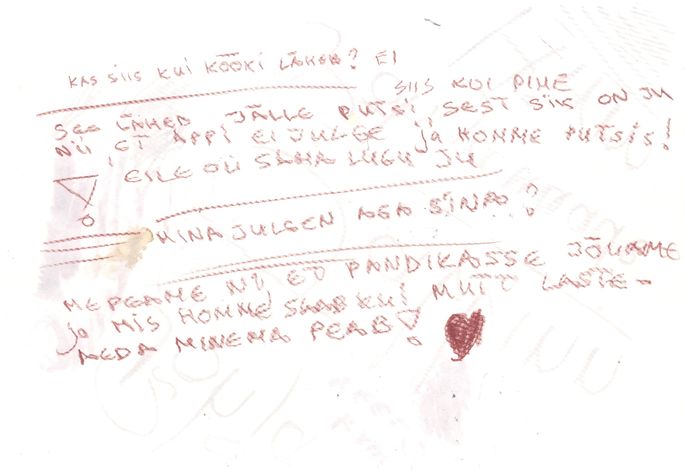 KAS SIIS KUI KÖÖKI LÄHED? EI
SIIS KUI PIME
SEE LÄHED JÄLLE PUTSI, SEST SIIS ON JU
NII, ET APPI EI JULGE ja HOMME PUTSIS!
EILE OLI SAMA LUGU JU
MINA JULGEN AGA SINA?
ME PEAME NII, ET PANDIKASSE JÕUAME
ja MIS HOMME SAAB KUI MUIT LASTE-
AEDA MINEMA PEAB!